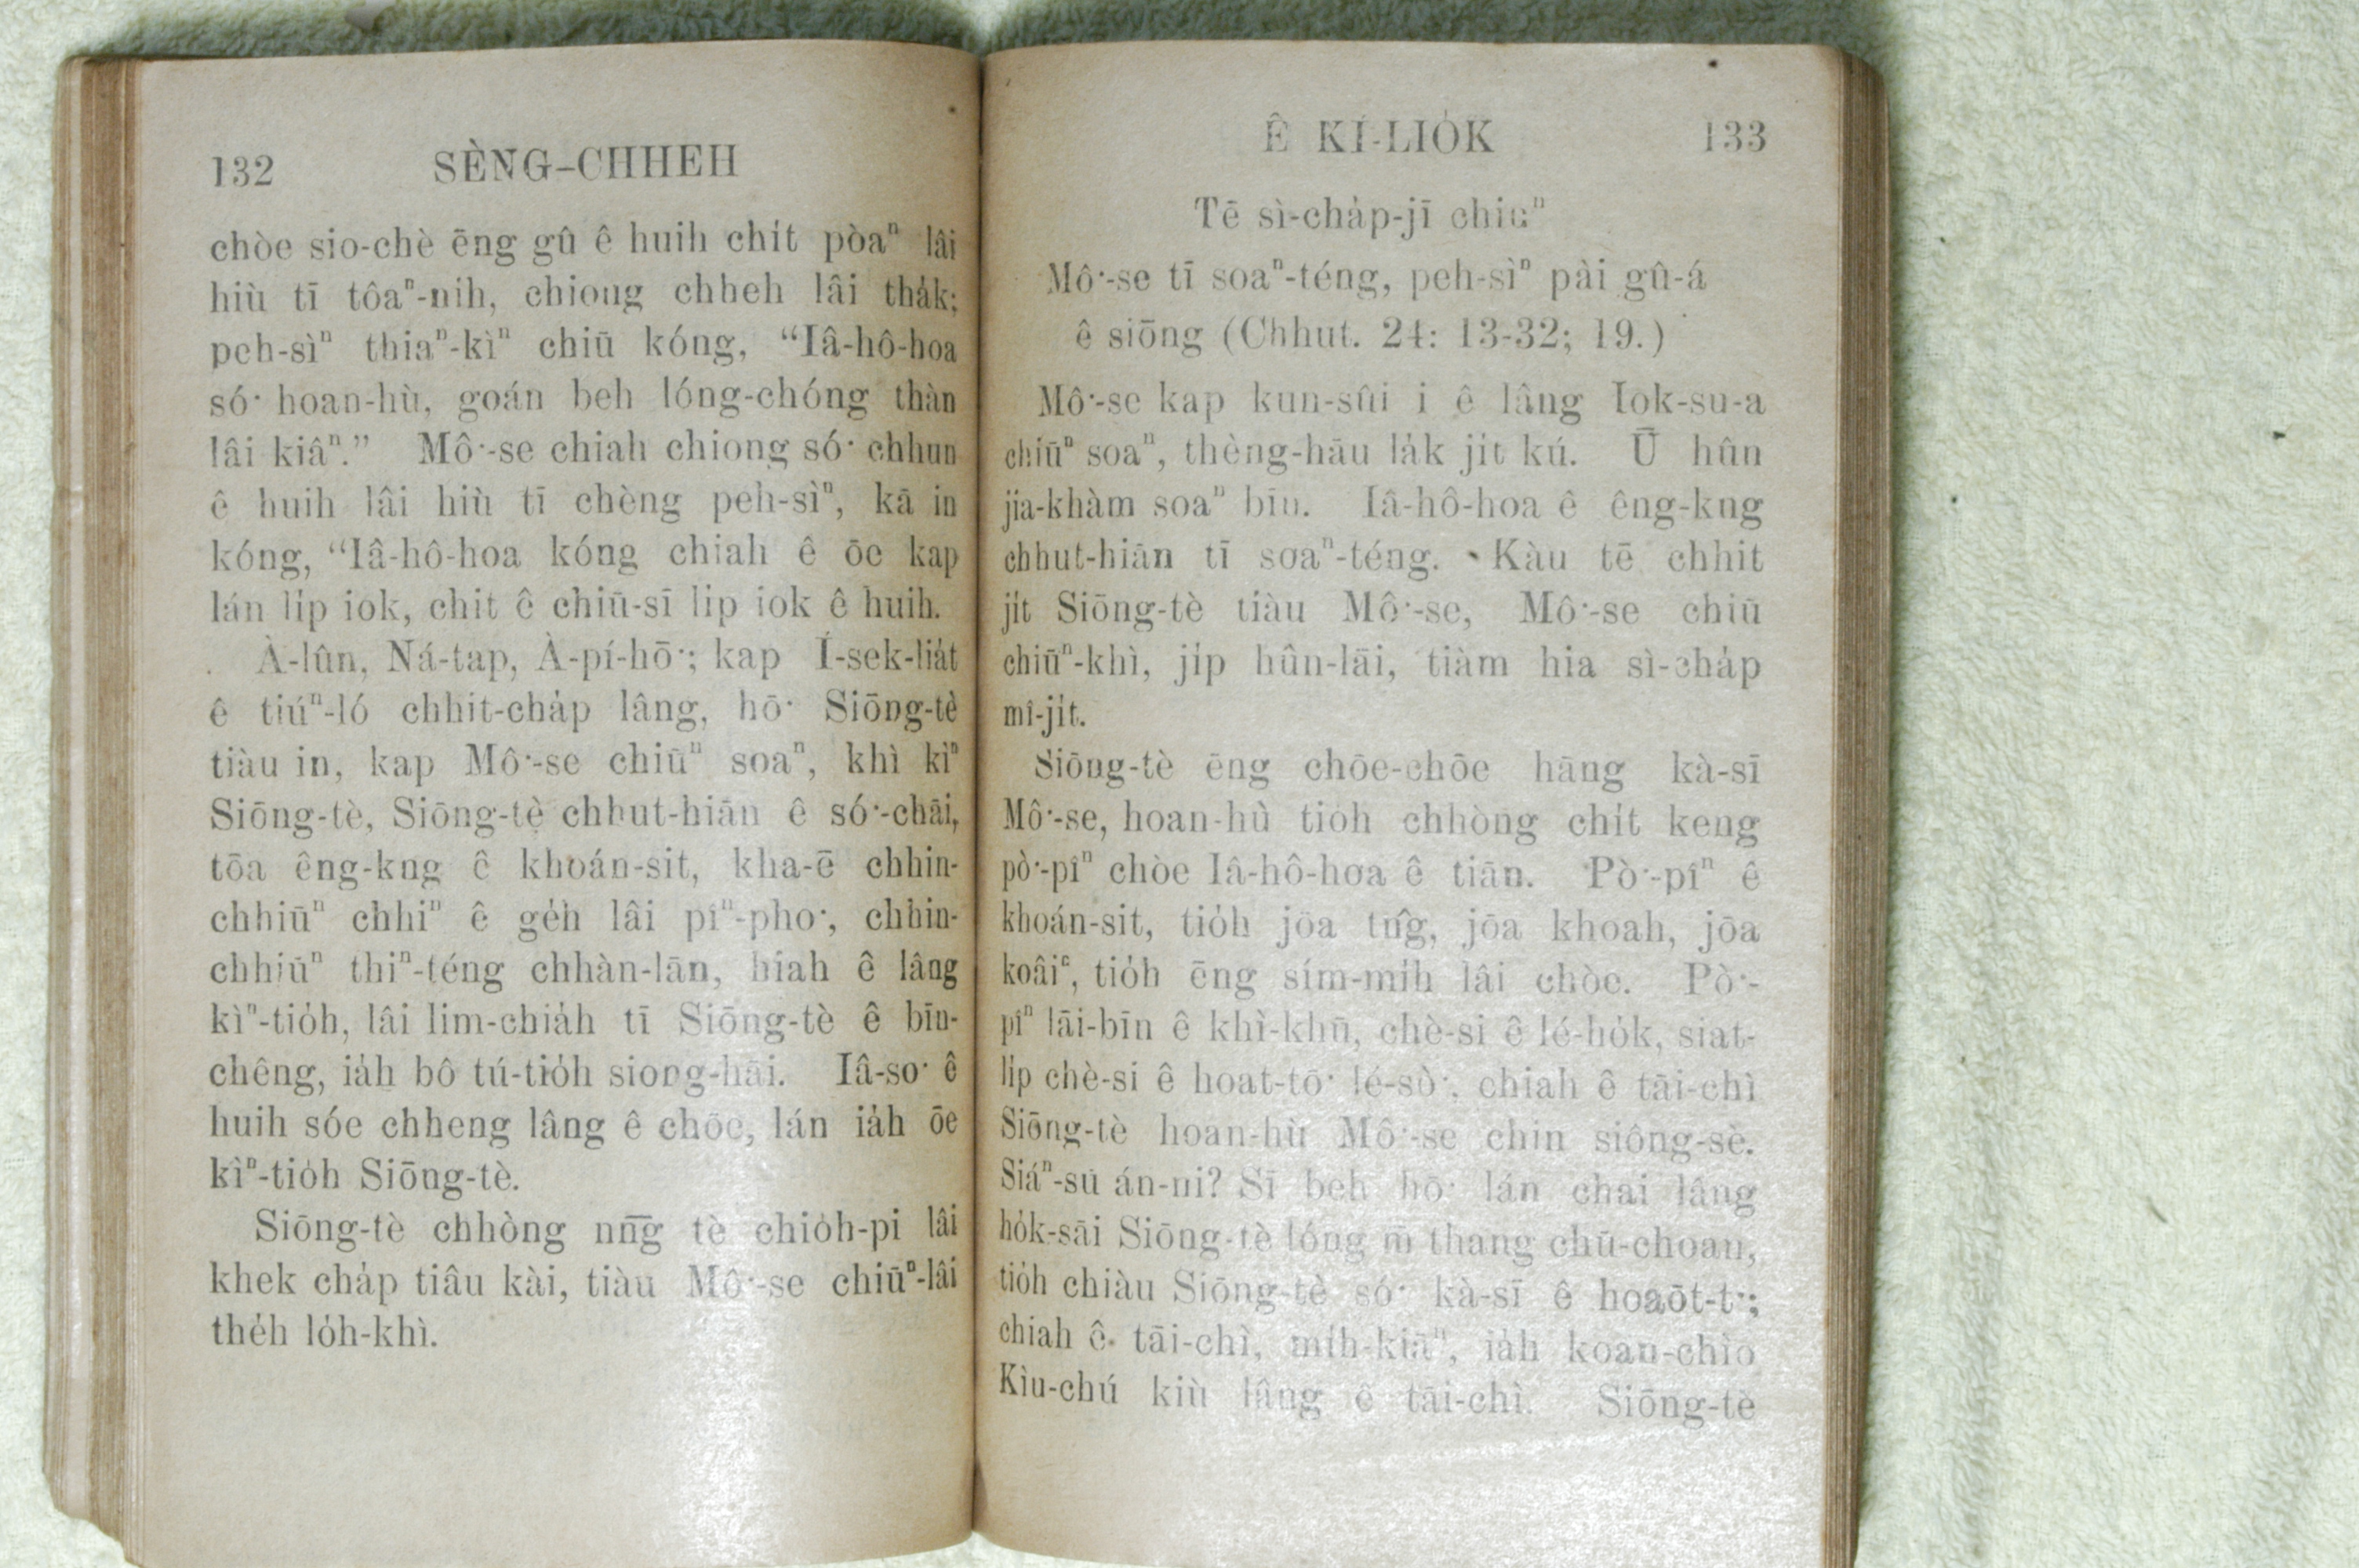 132 SÈNG-CHHEH
chòe sio-chè ēng gû ê huih chı̍t pòaⁿ lâi
hiù tī tôaⁿ-nih, chiong chheh lâi tha̍k;
peh-sìⁿ thiaⁿ-kìⁿ chiū kóng, “Iâ-hô-hoa
só͘ hoan-hù, goán beh lóng-chóng thàn
lâi kiâⁿ.” Mô͘-se chiah chiong só͘ chhun
ê huih lâi hiù tī chèng peh-sìⁿ, kā in
kóng, “Iâ-hô-hoa kóng chiah ê ōe kap
lán li̍p iok, chit ê chiū-sī li̍p iok ê huih.
À-lûn, Ná-tap, À-pí-hō͘; kap Í-sek-lia̍t
ê tiúⁿ-ló chhit-cha̍p lâng, hō͘ Siōng-tè
tiàu in, kap Mô͘-se chiūⁿ soaⁿ, khì kìⁿ
Siōng-tè, Siōng-tè chhut-hiān ê só͘-chāi,
tōa êng-kng ê khoán-sit, kha-ē chhin-
chhiūⁿ chhiⁿ ê ge̍h lâi pîⁿ-pho͘, chhin-
chhiūⁿ thiⁿ-téng chhàn-lān, hiah ê lâng
kìⁿ-tio̍h, lâi lim-chia̍h tī Siōng-tè ê bīn-
chêng, ia̍h bô tú-tio̍h siong-hāi. Iâ-so͘ ê
huih sóe chheng lâng ê chōe, lán ia̍h ōe
kìⁿ-tio̍h Siōng-tè.
Siōng-tè chhòng nn̄g tè chio̍h-pi lâi
khek cha̍p tiâu kài, tiàu Mô͘-se chiūⁿ-lâi
the̍h lo̍h-khì.
Ê KÍ-LIO̍K 133
Tē sì-cha̍p-jī chiuⁿ
Mô͘-se tī soaⁿ-téng, peh-sìⁿ pài gû-á
ê siōng (Chhut. 24: 13-32; 19.)
Mô͘-se kap kun-sûi i ê lâng Iok-su-a
chiūⁿ soaⁿ, thèng-hāu la̍k ji̍t kú. Ū hûn
jia-khàm soaⁿ bīn. Iâ-hô-hoa ê êng-kng
chhut-hiān tī soaⁿ-téng. Kàu tē chhit
ji̍t Siōng-tè tiàu Mô͘-se, Mô͘-se chiū
chiūⁿ-khì, ji̍p hûn-lāi, tiàm hia sì-cha̍p
mî-ji̍t.
Siōng-tè ēng chōe-chōe hāng kà-sī
Mô͘-se, hoan-hù tio̍h chhòng chı̍t keng
pò͘-pîⁿ chòe Iâ-hô-hoa ê tiān. Pò͘-pîⁿ ê
khoán-sit, tio̍h jōa tn̂g, jōa khoah, jōa
koâiⁿ, tio̍h ēng sím-mi̍h lâi chòe. Pò͘-
pîⁿ lāi-bīn ê khì-khū, chè-si ê lé-ho̍k, siat-
li̍p chè-si ê hoat-tō͘ lé-sò͘, chiah ê tāi-chì
Siōng-tè hoan-hù Mô͘-se chin siông-sè.
Siáⁿ-sū án-ni? Sī beh hō͘ lán chai lâng
ho̍k-sāi Siōng-tè lóng m̄ thang chū-choan,
tio̍h chiàu Siōng-tè só͘ kà-sī ê hoaōt-t͘;
chiah ê tāi-chì, mi̍h-kiāⁿ, ia̍h koan-chìo
Kìu-chú kiù lâng ê tāi-chì. Siōng-tè